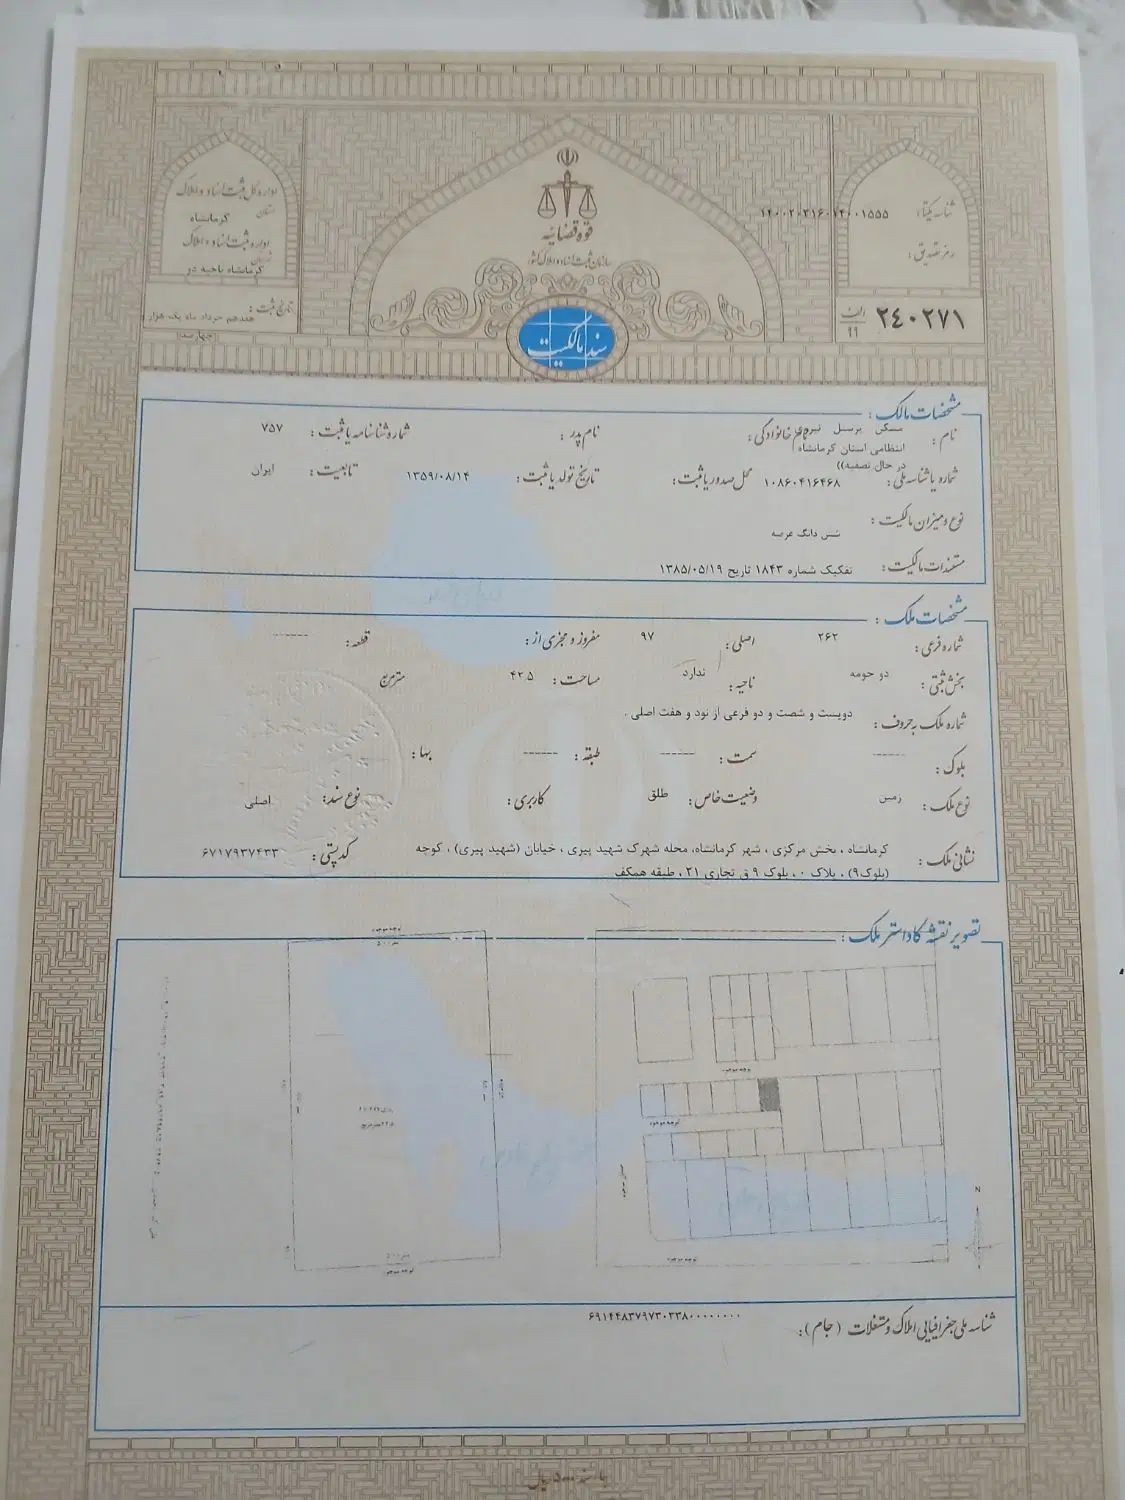 قوه قضائیه
سازمان ثبت اسناد و املاک کشور
سند مالکیت
اداره کل ثبت اسناد و املاک
استان
کرمانشاه
اداره ثبت اسناد و املاک
شهرستان
کرمانشاه ناحیه دو
تاریخ ثبت:
هفدهم خرداد ماه یک هزار
شناسه یکتا: ۱۴۰۰۲۰۳۱۶۰۱۴۰۰۱۵۵۵
رمز تصدیق:
۲۴۰۲۷۱ الف ۱۱
مشخصات مالک:
نام: مسکن پرسنل نیروی انتظامی استان کرمانشاه در حال تصفیه)) نام خانوادگی: نام پدر: شماره شناسنامه یا ثبت: ۷۵۷
شماره یا شناسه ملی: ۱۰۸۶۰۴۱۶۴۶۸ محل صدور یا ثبت: تاریخ تولد یا ثبت: ۱۳۵۹/۰۸/۱۴ تابعیت: ایران
نوع و میزان مالکیت: شش دانگ عرصه
مستندات مالکیت: تفکیک شماره ۱۸۴۳ تاریخ ۱۳۸۵/۰۵/۱۹
مشخصات ملک:
شماره فرعی: ۲۶۲ اصلی: ۹۷ مفروز و مجزی از: ------ قطعه:
بخش ثبتی: دو حومه ناحیه: ندارد مساحت: ۴۲.۵ مترمربع
شماره ملک به حروف: دویست و شصت و دو فرعی از نود و هفت اصلی .
بلوک: ------ سمت: ------ طبقه: ------ بها:
نوع ملک: زمین وضعیت خاص: طلق کاربری: نوع سند: اصلی
نشانی ملک: کرمانشاه ، بخش مرکزی ، شهر کرمانشاه، محله شهرک شهید پیری ، خیابان (شهید پیری) ، کوچه کدپستی: ۶۷۱۷۹۳۷۴۳۳
(بلوک۹) ، پلاک ۰ ، بلوک ۹ ق تجاری ۲۱ ، طبقه همکف
تصویر نقشه کاداستر ملک:
کوچه موجود
کوچه موجود
کوچه موجود
کوچه موجود
کوچه موجود
N
شناسه ملی جغرافیایی املاک و مستغلات (جام): ۶۹۱۴۴۸۳۷۹۷۳۰۳۳۸۰۰۰۰۰۰۰۰۰